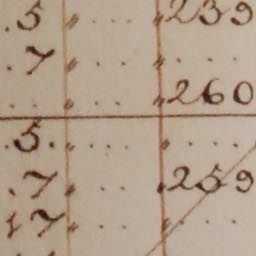 .5 " . . . " 239
.7 " . . . " . . . .
. . " . . . " 260
.5. " . . . . " . . . .
.7 " . . . " 259
17 " . . . " . . .